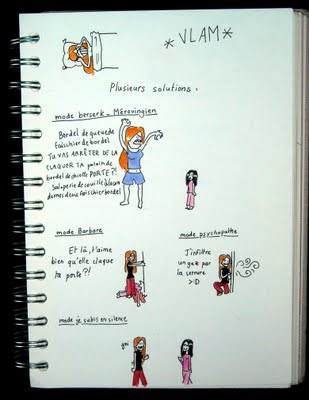 *VLAM*
Plusieurs solutions.
mode berserk _ Mérovingien
Bordel de queue de
fais chier de bordel
TU VAS ARRÊTER DE LA
CLAQUER TA putain de
bordel de chiotte PORTE?!
Saloperie de couille
de mes deux fais chier bordel
mode Barbare
Et là, t'aime
bien qu'elle claque
ta porte?!
mode psychopathe
J'infiltre
un gaz par
la serrure
>:D
mode je subis en silence